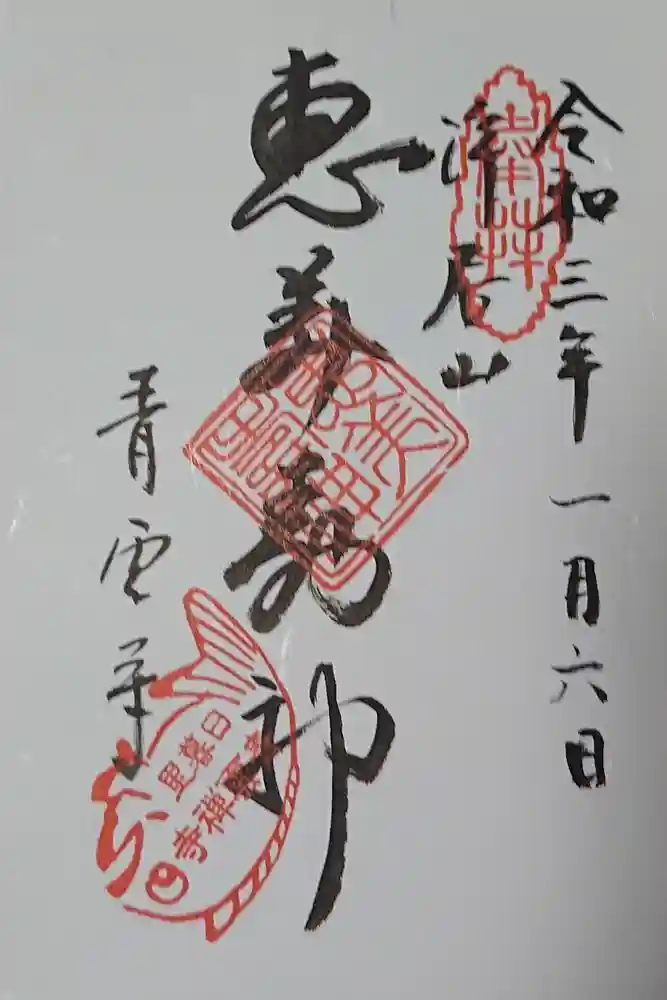 令和三年一月六日
浄居山
恵美寿神
青雲寺
青雲禅寺
日暮里